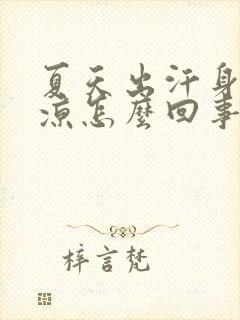 夏天出汗身
涼怎麼回事
梓言梵